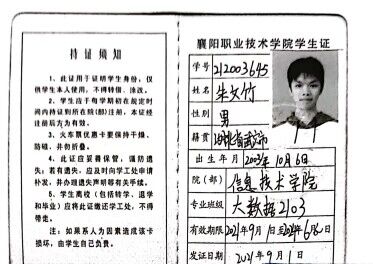 持证须知
1、此证用于证明学生身份，仅
供学生本人使用，不得转借、涂改。
2、学生应于每学期初在规定时
间内持证到所在院(部)注册，本证经
注册后方为有效。
3、火车票优惠卡要保持干燥、
防磁，并勿折叠。
4、此证应妥善保管，谨防遗
失；若有遗失，应及时向学工处申请
补发，并办理遗失声明等有关手续。
5、学生离校（包括转学、退学
和毕业）应将此证缴还学工处，不得
带走。
注：如果系人为因素造成该卡
损坏，由学生自己负费。
襄阳职业技术学院学生证
学号 212003645
姓名 朱文竹
性别 男
籍贯 湖北省武汉市
出生年月 2003年10月6日
院(部) 信息技术学院
专业班级 大数据2103
有效期限 2021年9月1日至2024年6月
发证日期 2021年9月1日